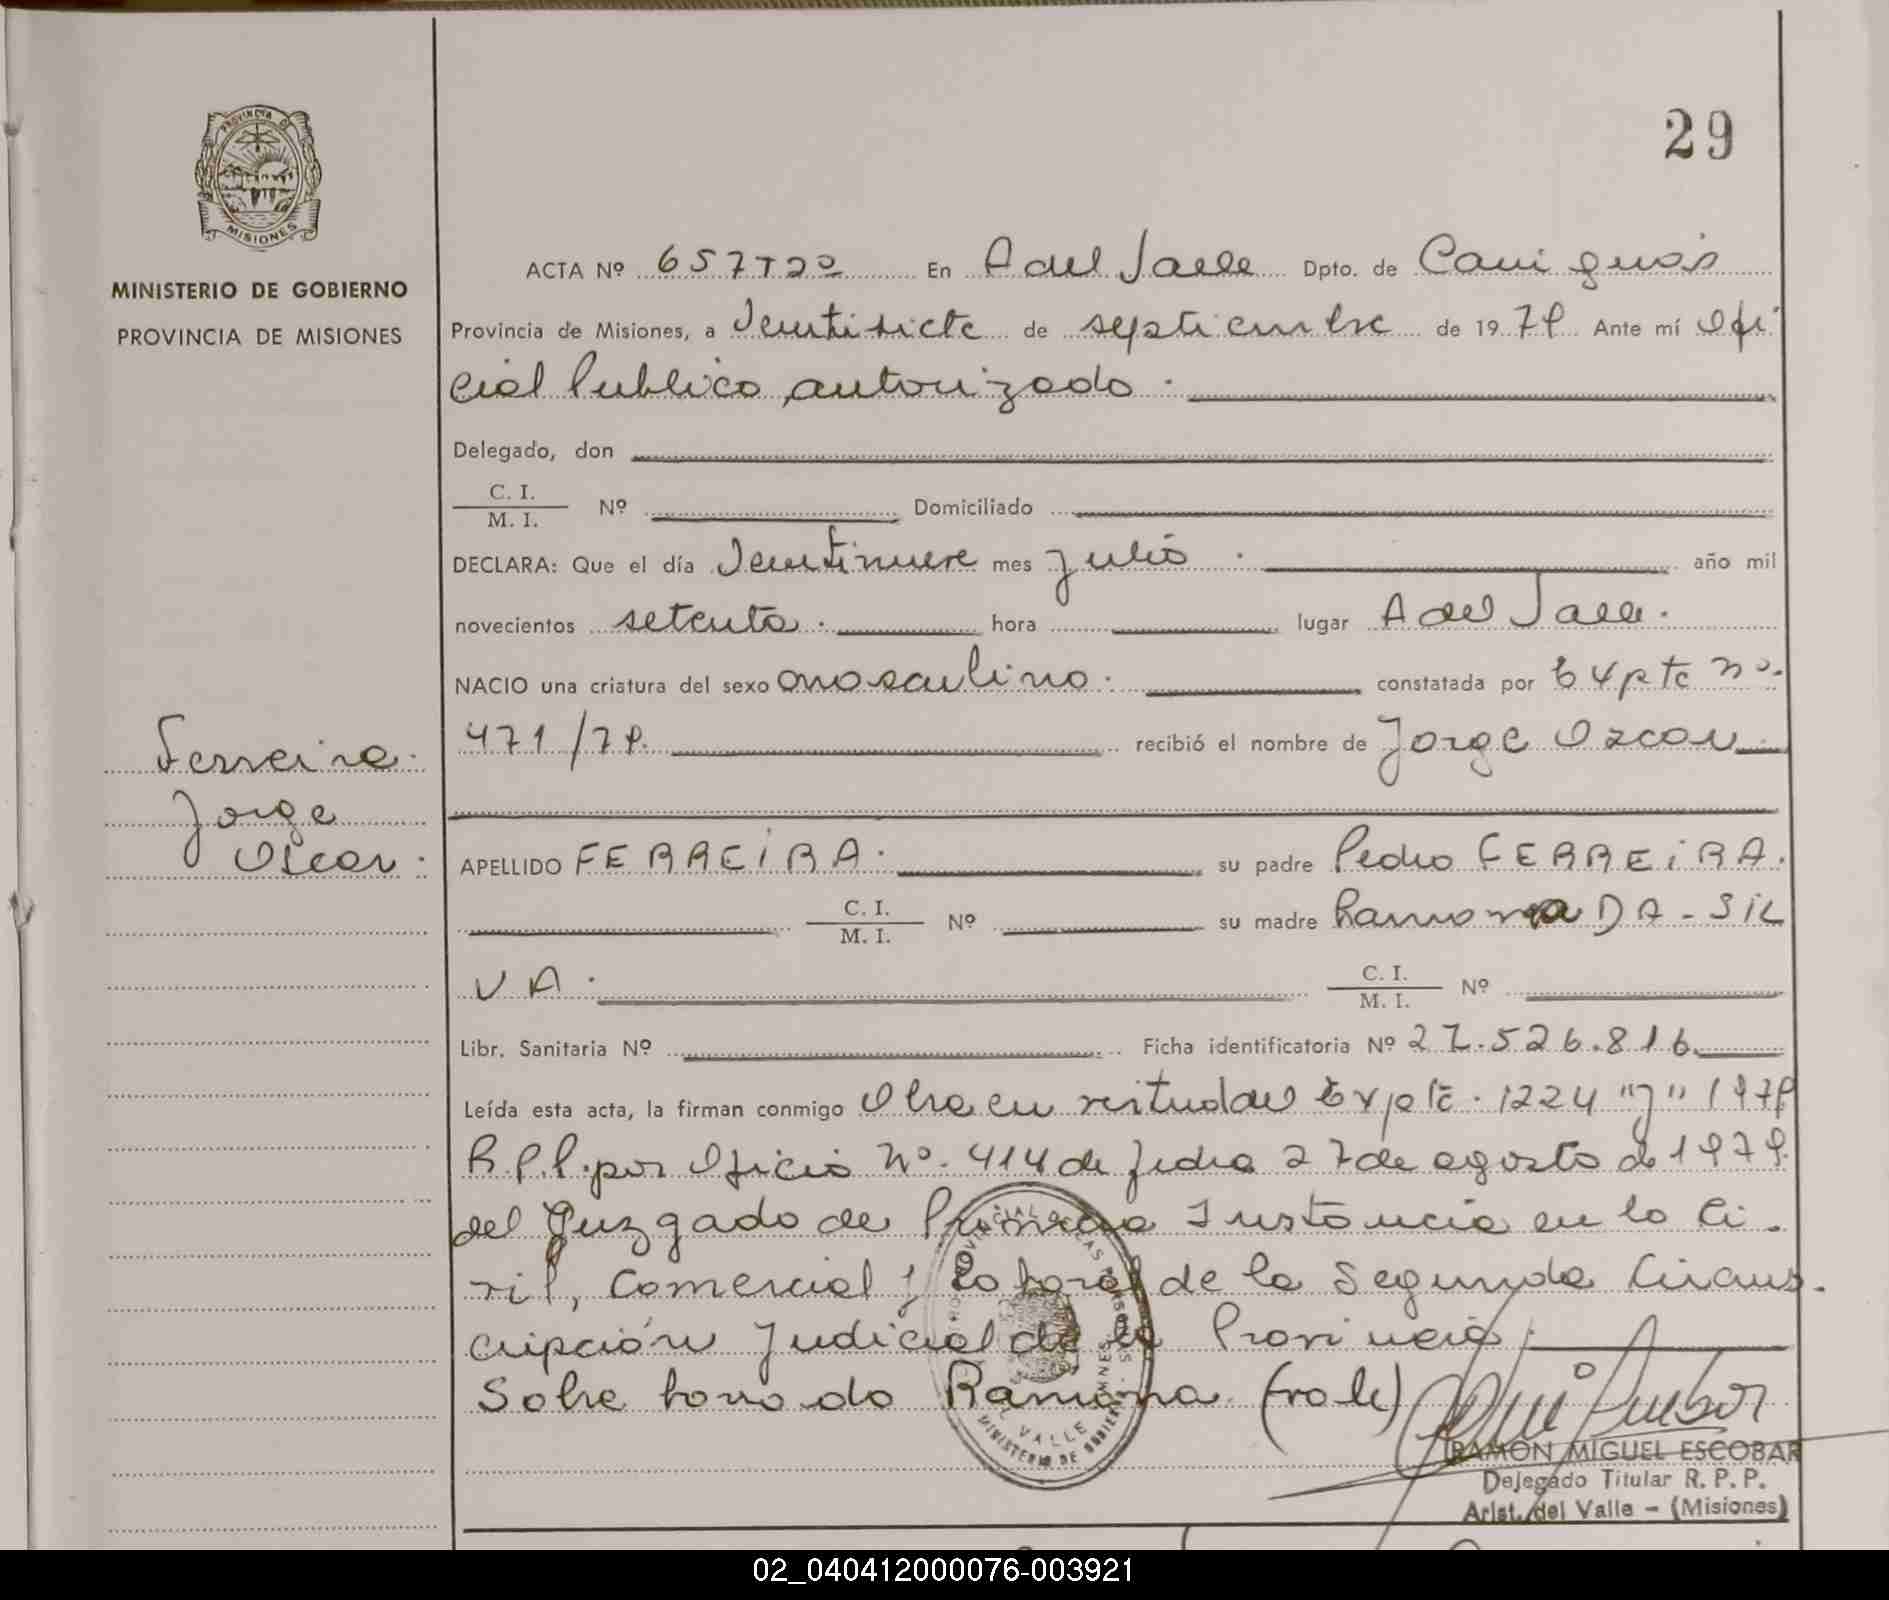 PROVINCIA DE
MISIONES
MINISTERIO DE GOBIERNO
PROVINCIA DE MISIONES
29
ACTA Nº 657 Tº 2º En A del Valle Dpto. de Cainguás
Provincia de Misiones, a Veintisiete de septiembre de 1979 Ante mí Ofi
cial Publico autorizado.
Delegado, don
C. I.
M. I. Nº Domiciliado
DECLARA: Que el día Veintinueve mes Julio. año mil
novecientos setenta. hora lugar A del Valle.
NACIO una criatura del sexo masculino. constatada por Expte nº.
471/79. recibió el nombre de Jorge Oscar
Ferreira.
Jorge
Oscar.
APELLIDO FERREIRA. su padre Pedro FERREIRA.
C. I.
M. I. Nº su madre Ramona DA-SIL
VA. C. I.
M. I. Nº
Libr. Sanitaria Nº Ficha identificatoria Nº 27.526.816
Leída esta acta, la firman conmigo Obra en virtud del Expte. 1224 "J" 1979
R.P.P. por Oficio Nº. 414 de fecha 27 de agosto de 1979.
del Juzgado de Primera Instancia en lo Ci.
vil, Comercial y Laboral de la Segunda Circuns.
cripción Judicial de la Provincia.
Sobre borrado Ramona (vale)
VALLE
MINISTERIO DE
RAMON MIGUEL ESCOBAR
Delegado Titular R. P. P.
Arist. del Valle - (Misiones)
02_040412000076-003921